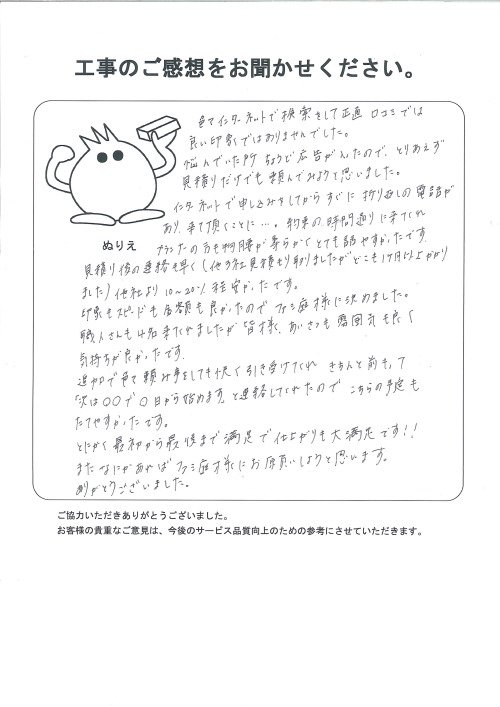 工事のご感想をお聞かせください。
色々インターネットで検索をして正直 口コミでは
良い印象ではありませんでした。
悩んでいた所 ちょうど広告が入ったので、とりあえず
見積りだけでも頼んでみようと思いました。
インターネットで申し込みをしてからすぐに 折り返しの電話が
あり、来て頂くことに…。約束の時間通りに来てくれ
ぬりえ
プランナーの方も物腰が柔らかくとても話やすかったです。
見積り後の連絡も早く(他3社見積もり取りましたがどこも1ヶ月以上かかり
ました)他社より10~20%程安かったです。
印象もスピードも金額も良かったので ファミ庭様に決めました。
職人さんも4名来てくれましたが皆様、あいさつも雰囲気も良く
気持ちが良かったです。
追加で色々頼み事をしても快く引き受けてくれ きちんと前もって
「次は〇〇で〇日から始めます」と連絡してくれたので こちらの予定も
たてやすかったです。
とにかく最初から最後まで満足で仕上がりも大満足です!!
またなにかあればファミ庭様にお願いしようと思います。
ありがとうございました。
ご協力いただきありがとうございました。
お客様の貴重なご意見は、今後のサービス品質向上のための参考にさせていただきます。